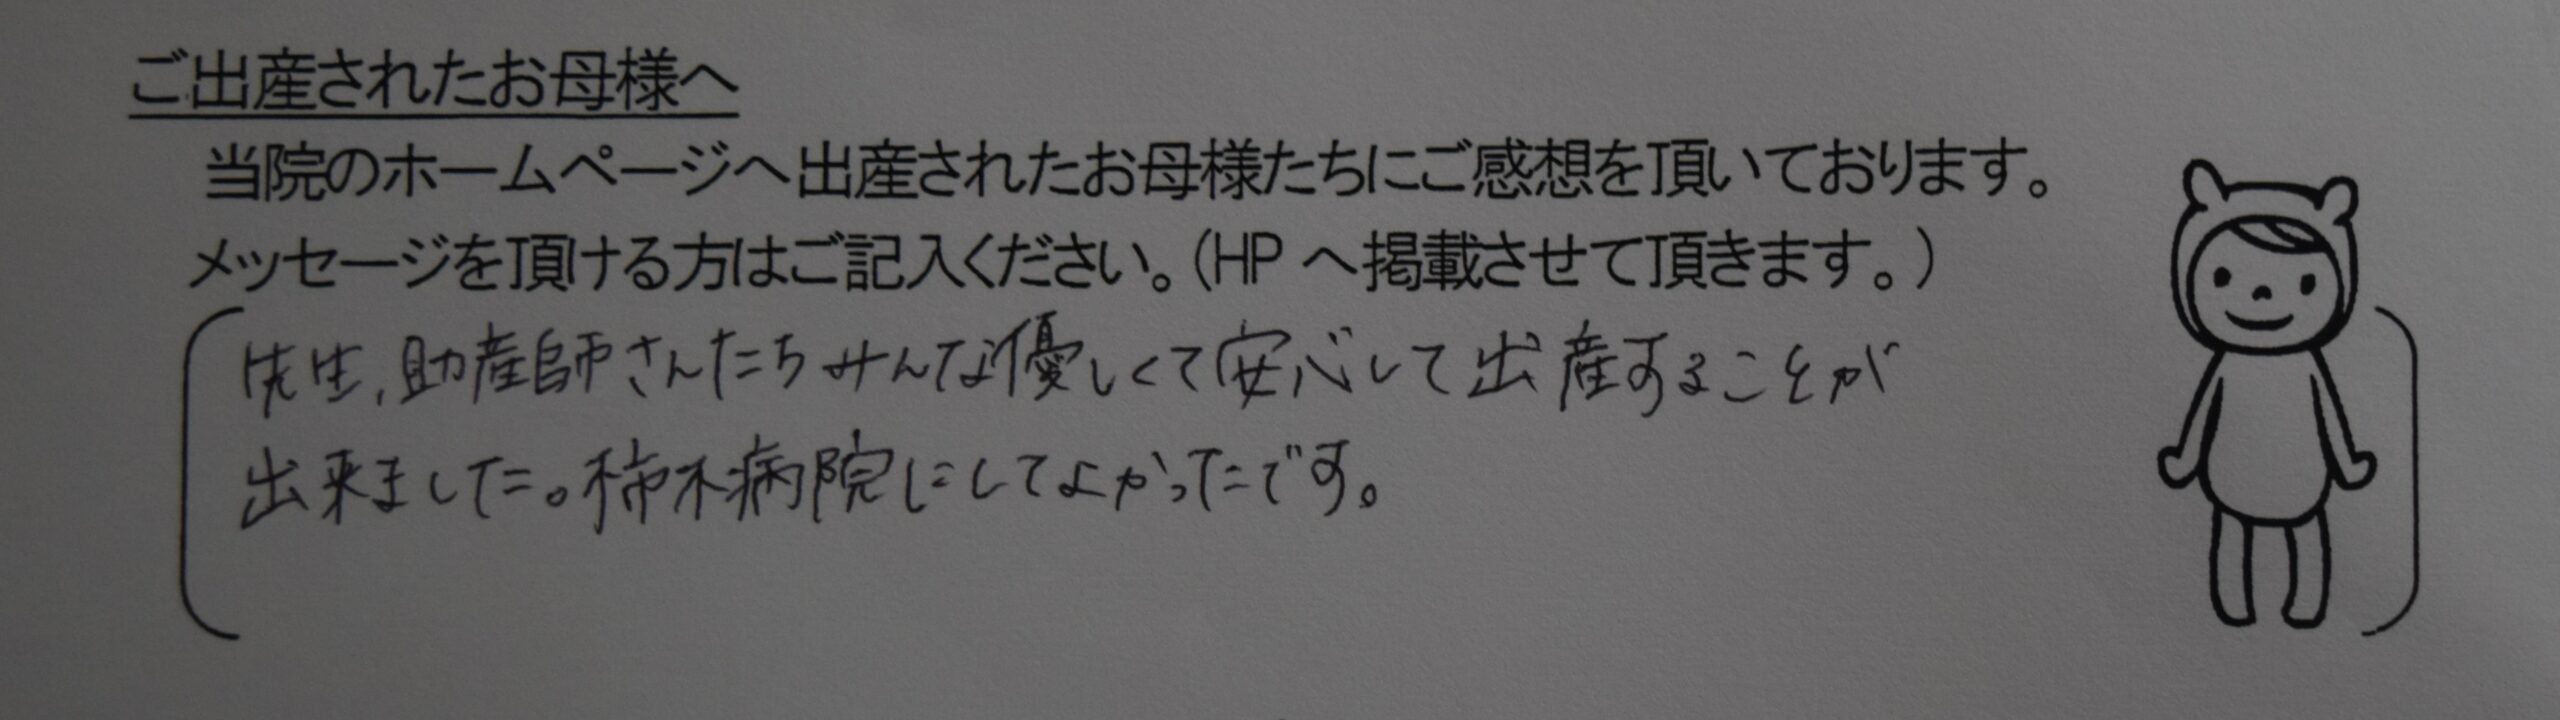 ご出産されたお母様へ
当院のホームページへ出産されたお母様たちにご感想を頂いております。
メッセージを頂ける方はご記入ください。（HPへ掲載させて頂きます。）
先生、助産師さんたちみんな優しくて安心して出産することが
出来ました。柿木病院にしてよかったです。